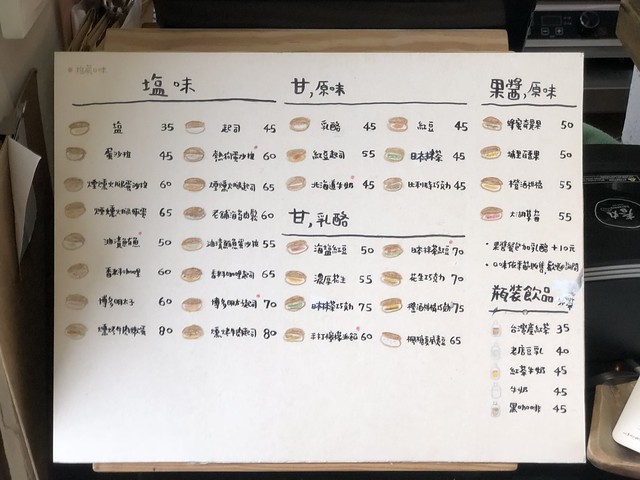 塩味
塩 35
起司 45
蛋沙拉 45
熱狗蛋沙拉 60
煙燻火腿蛋沙拉 60
煙燻火腿起司 65
65
老舖海苔肉鬆 60
油漬鮪魚 50
油漬鮪魚蛋沙拉 55
香料咖哩 60
香料咖哩起司 65
博多明太子 60
博多明太起司 70
燻烤牛肉 80
燻烤牛肉起司 80
甘,原味
乳酪 45
紅豆 45
紅豆起司 55
日本抹茶 45
北海道牛奶 45
比利時巧克力 45
甘,乳酪
海鹽紅豆 50
日本抹茶紅豆 70
濃厚花生 55
花生巧克力 70
日本抹茶巧克力 75
橙酒柑橘巧克力 75
手打檸檬油餡 60
65
果醬,原味
蜂蜜奇異果 50
50
55
大湖草莓 55
果醬餐包加乳酪+10元
瓶裝飲品
台灣產紅茶 35
老店豆乳 40
紅茶牛奶 45
牛奶 45
黑咖啡 45